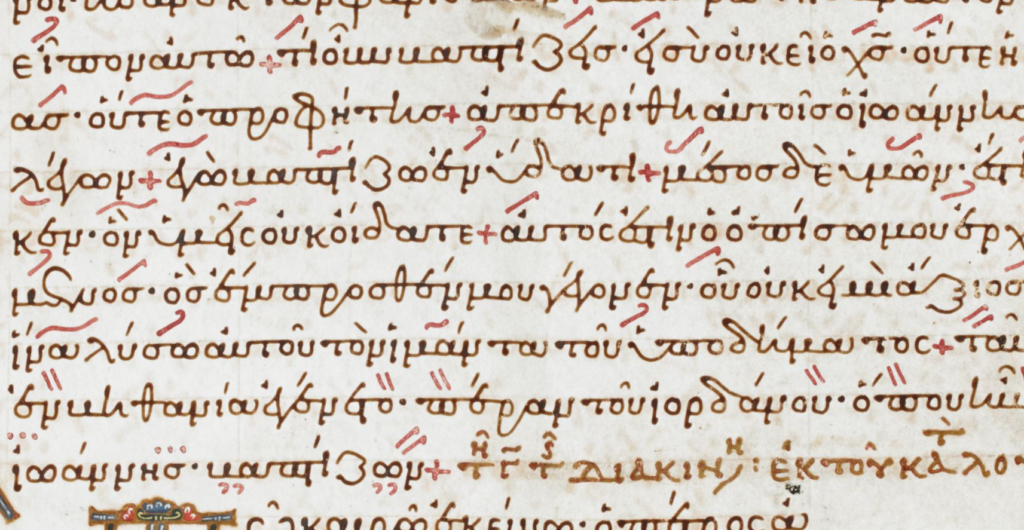 εἶπον αὐτῶ + τί οὖν βαπτίζεις· εἰ σὺ οὐκ εἶ ὁ χς· οὔτε ἡ
ας· οὔτε ὁ προφήτης + ἀπεκρίθη αὐτοῖς ὁ ἰωάννης
λέγων + ἐγὼ βαπτίζω ἐν ὕδατι + μέσος δὲ ὑμῶν· ἕστη
κεν· ὃν ὑμεῖς οὐκ οἴδατε + αὐτός ἐστιν ὁ ὀπίσω μου ἐρχ
μενος· ὃς ἔμπροσθέν μου γέγονεν· οὗ οὐκ εἰμὶ ἄξιος
ἵνα λύσω αὐτοῦ τὸν ἱμάντα τοῦ ὑποδήματος + ταῦ
ἐν βηθανία ἐγένετο· πέραν τοῦ ἰορδάνου· ὅπου ἦν
ἰωάννης· βαπτίζων + τῆ γ τς διακιν : ἐκ τοῦ κατ λο
καιρῶ ἐκείνω· ὁ πέτρος